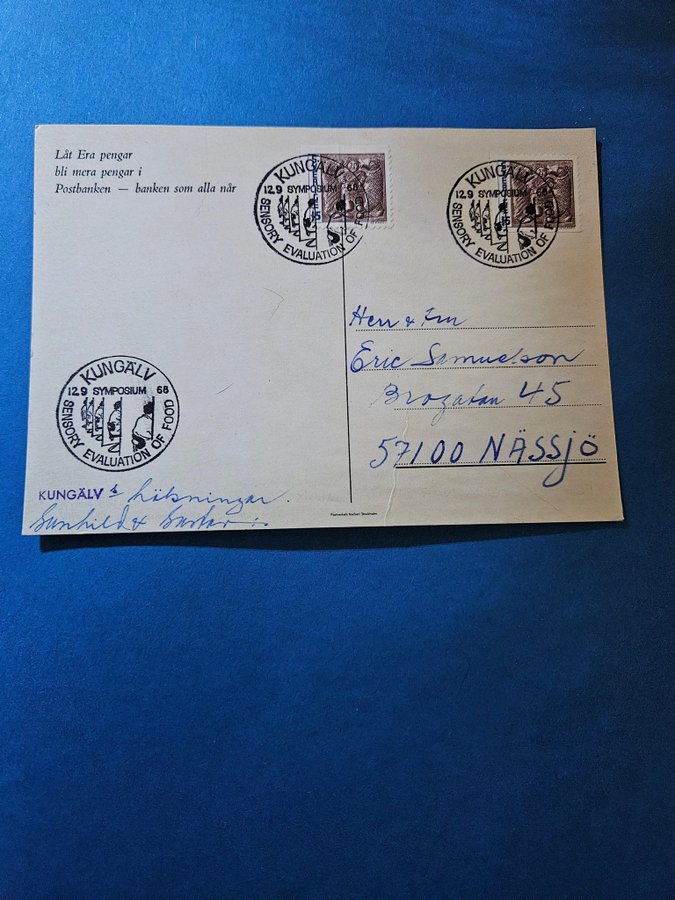 Låt Era pengar
bli mera pengar i
Postbanken — banken som alla når
KUNGÄLV
12.9 SYMPOSIUM 68
SENSORY EVALUATION OF FOOD
KUNGÄLV
12.9 SYMPOSIUM 68
SENSORY EVALUATION OF FOOD
Herr & Fru
Eric Samuelson
Brogatan 45
57100 NÄSSJÖ
KUNGÄLV
12.9 SYMPOSIUM 68
SENSORY EVALUATION OF FOOD
KUNGÄLV
Gunhild &